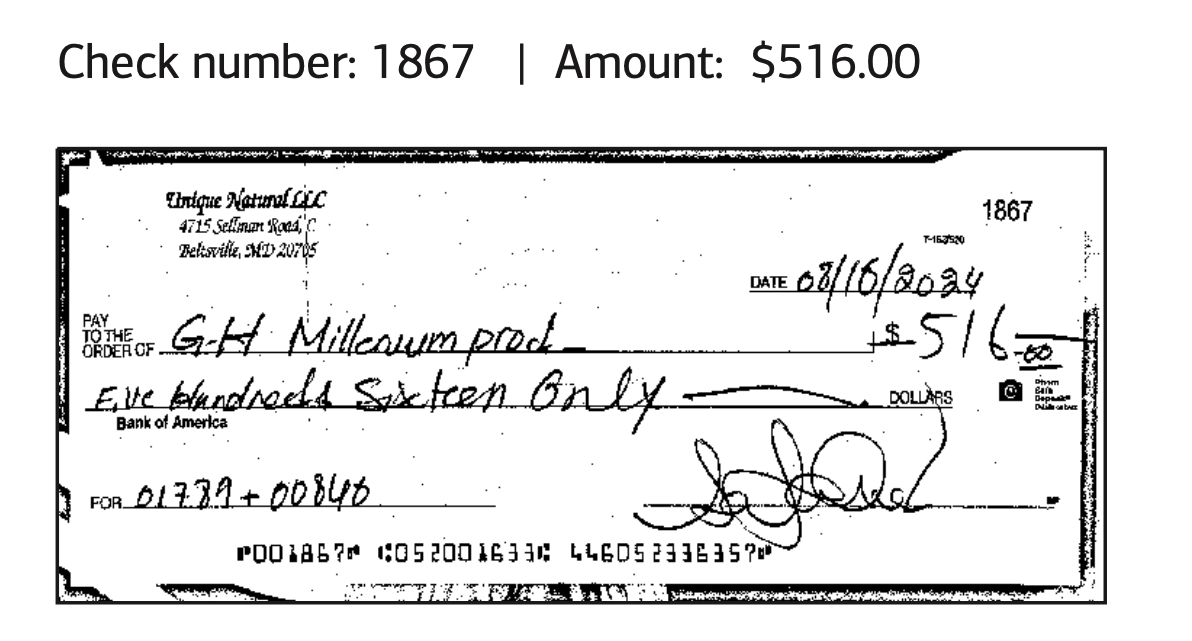 Check number: 1867 | Amount: $516.00
Unique Natural LLC
4715 Sellman Road, C
Beltsville, MD 20705
1867
DATE 08/16/2024
PAY TO THE ORDER OF G-H Millenium prod
$ 516-00
Five Hundred Sixteen Only DOLLARS
Bank of America
FOR 01789+00846
⑈001867⑈ ⑆052001633⑆ 446052336357⑈